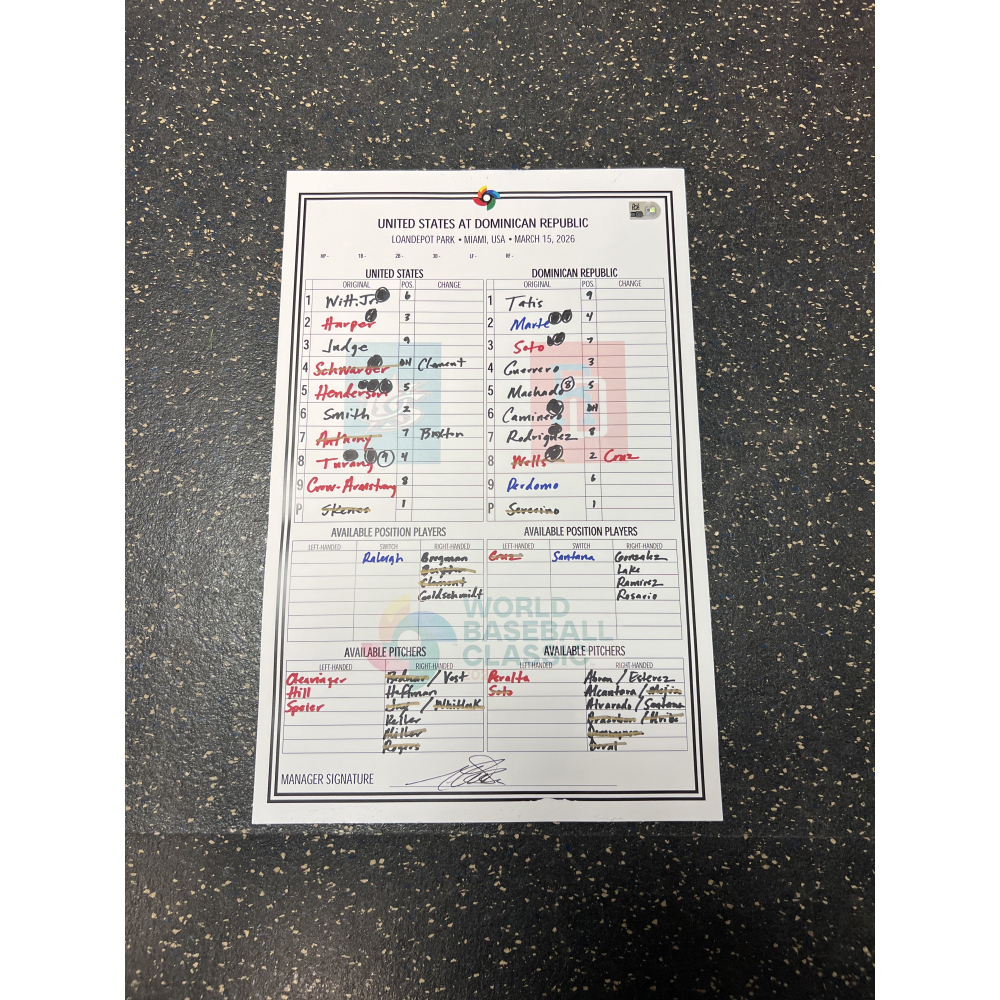 UNITED STATES AT DOMINICAN REPUBLIC
LOANDEPOT PARK • MIAMI, USA • MARCH 15, 2026
HP - 1B - 2B - 3B - LF - RF -
UNITED STATES
ORIGINAL POS. CHANGE
1 Witt.Jr 6
2 Harper 3
3 Judge 9
4 Schwarber DH Clement
5 Henderson 5
6 Smith 2
7 Anthony 7 Buxton
8 Turang 9 4
9 Crow-Armstrong 8
P Skenes 1
DOMINICAN REPUBLIC
ORIGINAL POS. CHANGE
1 Tatis 9
2 Marte 4
3 Soto 7
4 Guerrero 3
5 Machado 8 5
6 Caminero DH
7 Rodriguez 8
8 Wells 2 Cruz
9 Perdomo 6
P Severino 1
AVAILABLE POSITION PLAYERS
LEFT-HANDED SWITCH RIGHT-HANDED
Raleigh Bregman
Buxton
Clement
Goldschmidt
AVAILABLE POSITION PLAYERS
LEFT-HANDED SWITCH RIGHT-HANDED
Cruz Santana Gonzalez
Lake
Ramirez
Rosario
WORLD
BASEBALL
CLASSIC
AVAILABLE PITCHERS
LEFT-HANDED RIGHT-HANDED
Cleavinger Bednar / Yest
Hill Hoffman
Speier / Whitlock
Keller
Miller
Rogers
AVAILABLE PITCHERS
LEFT-HANDED RIGHT-HANDED
Peralta Abreu / Estevez
Soto Alcantara / Mejia
Alvarado / Santana
/ Uribe
Doval
MANAGER SIGNATURE